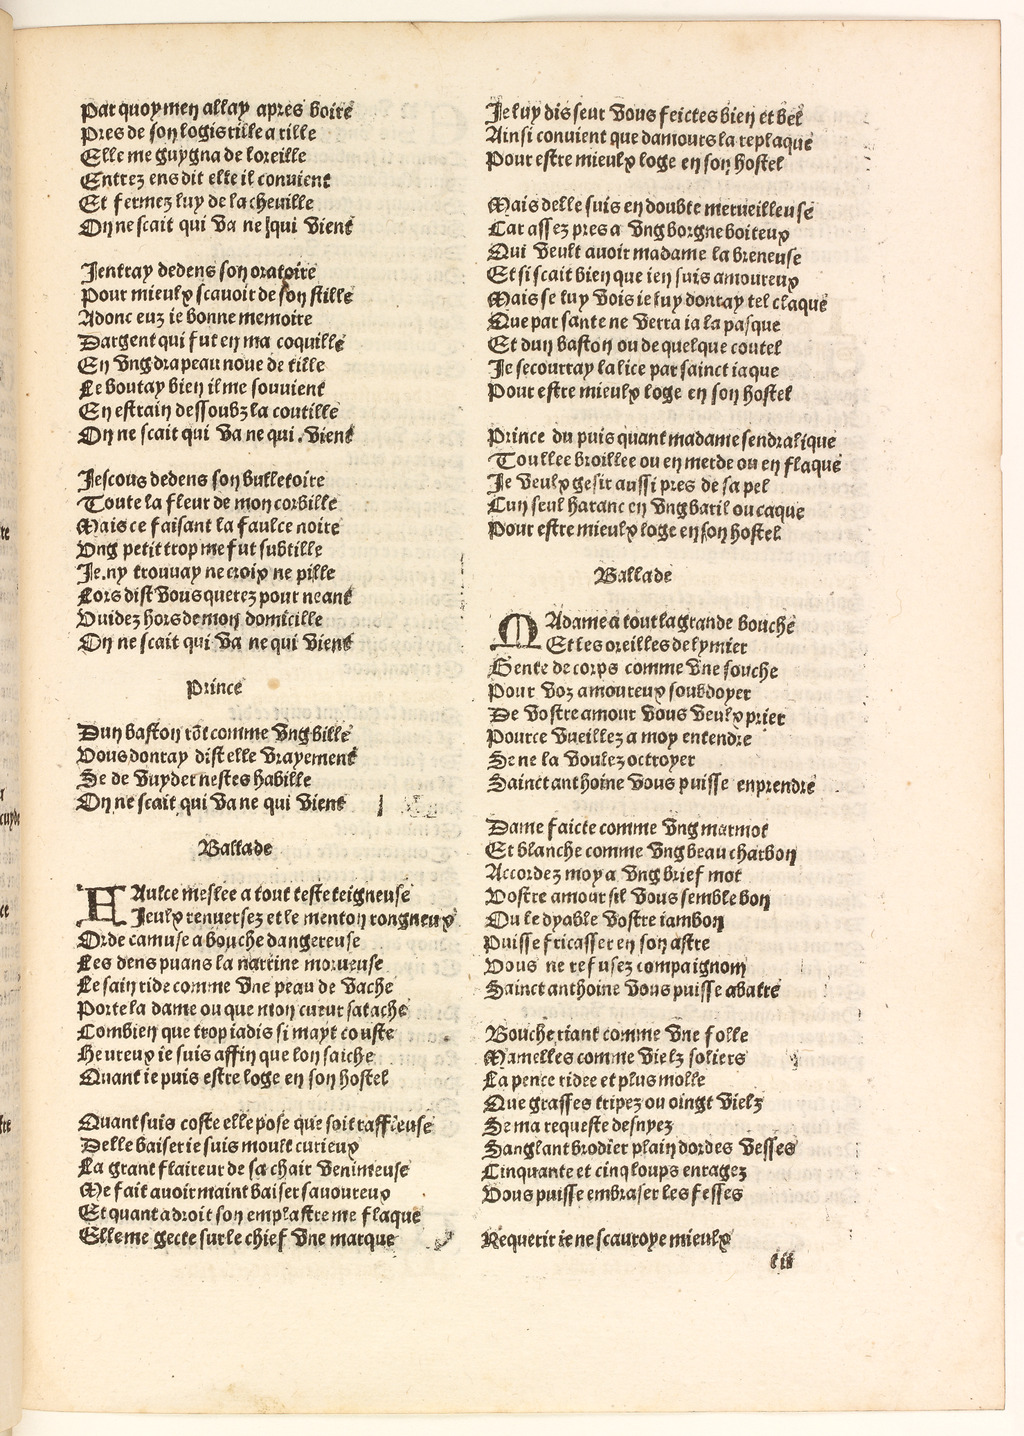 Par quoy men allay apres boire
Pres de son logis tille a tille
Elle me guygna de loreille
Entrez ens dit elle il convient
Et fermez luy de la cheville
On ne scait qui va ne qui vient
Jentray dedens son oratoire
Pour mieulx scavoir de son stille
Adonc euz ie bonne memoire
Dargent qui fut en ma coquille
En ung drapeau noue de tille
Le boutay bien il me souvient
En estrain dessoubz la coutille
On ne scait qui va ne qui . vient
Jescous dedens son bulletoire
Toute la fleur de mon corbille
Mais ce faisant la faulce noire
Ung petit trop me fut subtille
Je.ny trouvay ne croix ne pille
Lors dist vous querez pour neant
Vuidez hors de mon domicille
On ne scait qui va ne qui vient
Prince
Dun baston rōt comme ung bille
Vous donray dist elle vrayement
Se de vuyder nestes habille
On ne scait qui va ne qui vient
Ballade
HAulce meslee a tout teste teigneuse
Jeulx renversez et le menton rongneux
Orde camuse a bouche dangereuse
Les dens puans la narrine morveuse
Le sain ride comme une peau de vache
Porte la dame ou que mon cueur satache
Combien que trop iadis si mayt couste
Heureux ie suis affin que lon saiche
Quant ie puis estre loge en son hostel
Quant suis coste elle pose que soit raffleuse
Delle baiser ie suis moult curieux
La grant flaireur de sa chair venimeuse
Me fait avoir maint baiser savoureux
Et quant a droit son emplastre me flaque
Elle me gecte sur le chief une marque
Je luy dis seur vous feictes bien et bel
Ainsi convient que damours la replaque
Pour estre mieulx loge en son hostel
Mais delle suis en doubte merveilleuse
Car assez pres a ung borgne boiteux
Qui veult avoir madame la breneuse
Et si scait bien que ien suis amoureux
Mais se luy vois ie luy donray tel claque
Que par sante ne verra ia la pasque
Et dun baston ou de quelque coutel
Je secourray la lice par sainct iaque
Pour estre mieulx loge en son hostel
Prince du puis quant madame sendralique
Toullee broillee ou en merde ou en flaque
Je veulx gesir aussi pres de sa pel
Cun seul haranc en ung baril ou caque
Pour estre mieulx loge en son hostel
Ballade
MAdame a tout la grande bouche
Et les oreilles de lymier
Gente de corps comme une souche
Pour voz amoureux soubdoyer
De vostre amour vous veulx prier
Pource vueillez a moy entendre
Se ne la voulez octroyer
Sainct anthoine vous puisse enprendre
Dame faicte comme ung marmot
Et blanche comme ung beau charbon
Accordez moy a ung brief mot
Vostre amour sil vous semble bon
Ou le dyable vostre iambon
Puisse fricasser en son astre
Vous ne refusez compaignom
Sainct anthoine vous puisse abatre
Bouche riant comme une folle
Mamelles comme vielz soliers
La pence ridee et plus molle
Que grasses tripez ou oingt vielz
Se ma requeste desnyez
Sanglant brodier plain dordes vesses
Cinquante et cinq loups enragez
Vous puisse embraser les fesses
Requerir ie ne scauroye mieulx